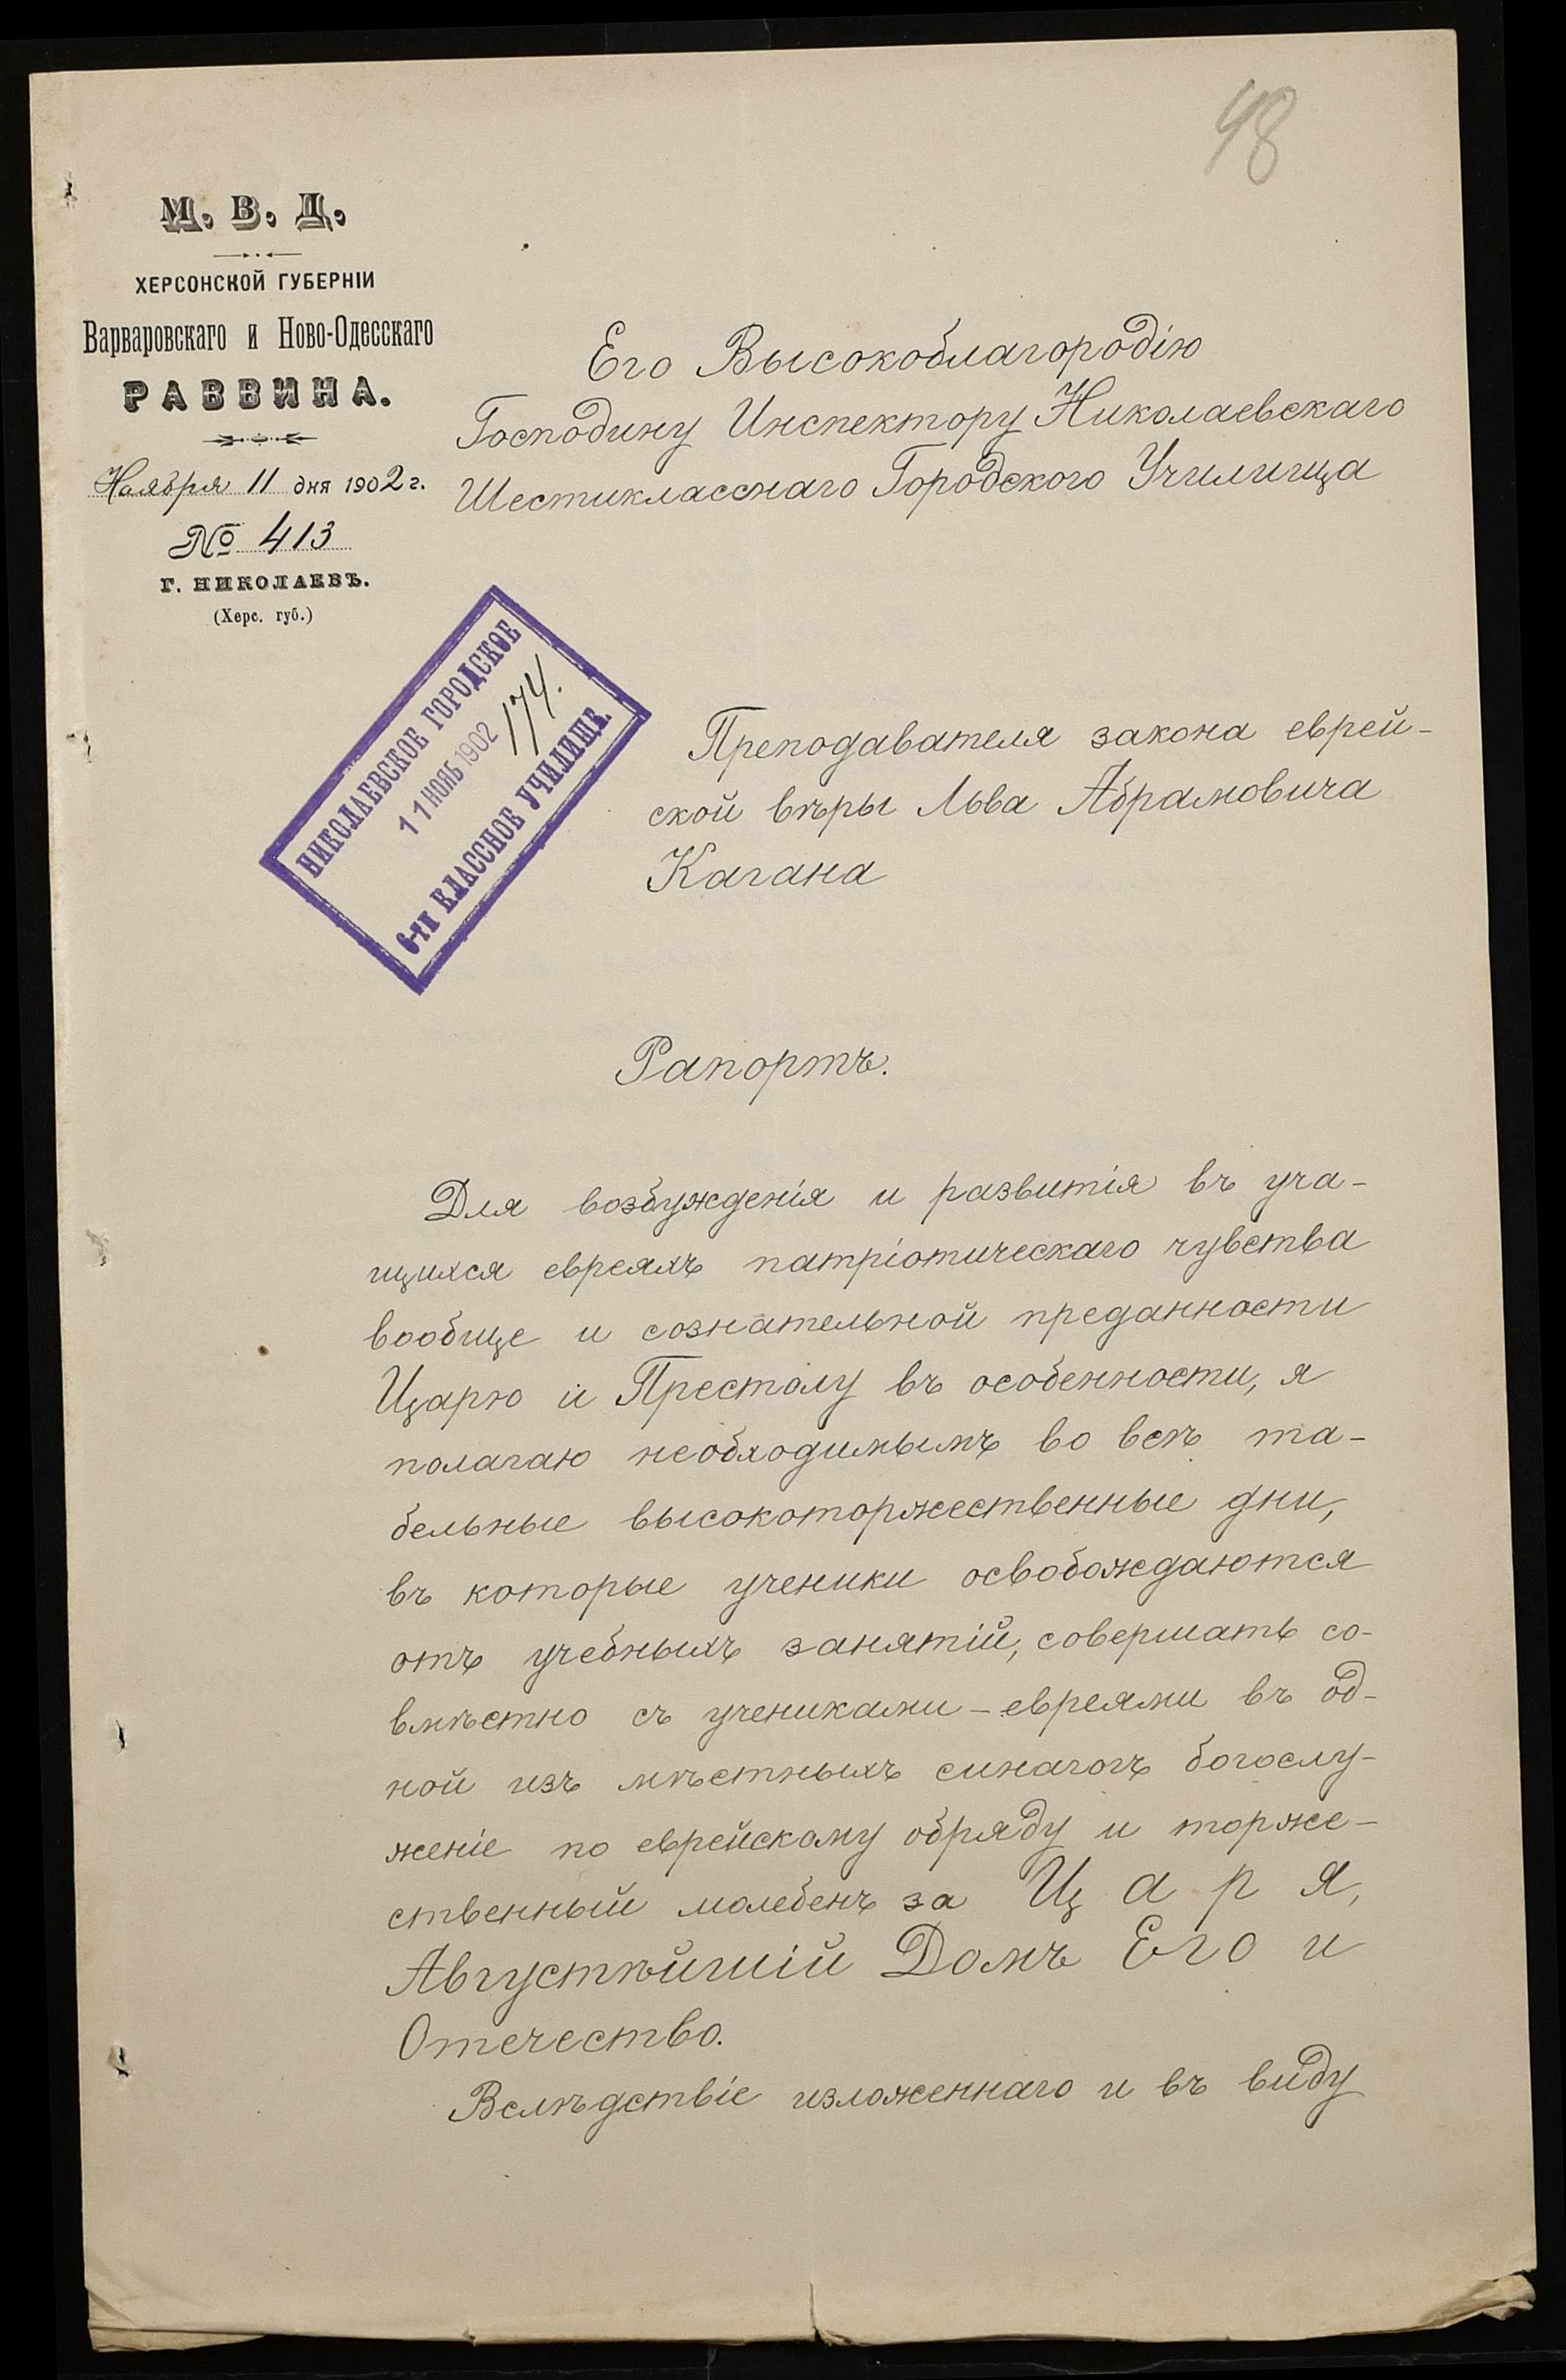 48
М. В. Д.
ХЕРСОНСКОЙ ГУБЕРНІИ
Варваровскаго и Ново-Одесскаго
РАВВИНА.
Ноября 11 дня 1902 г.
№ 413
Г. НИКОЛАЕВЪ.
(Херс. губ.)
Его Высокоблагородію
Господину Инспектору Николаевскаго
Шестикласснаго Городского Училища
НИКОЛАЕВСКОЕ ГОРОДСКОЕ
11 НОЯБ 1902
174.
6-ТИ КЛАССНОЕ УЧИЛИЩЕ.
Преподавателя закона еврей-
ской вѣры Льва Абрамовича
Кагана
Рапортъ.
Для возбужденія и развитія въ уча-
щихся евреяхъ патріотическаго чувства
вообще и сознательной преданности
Царю и Престолу въ особенности, я
полагаю необходимымъ во всѣ та-
бельные высокоторжественные дни,
въ которые ученики освобождаются
отъ учебныхъ занятій, совершать со-
вмѣстно съ учениками-евреями въ од-
ной изъ мѣстныхъ синагогъ богослу-
женіе по еврейскому обряду и торже-
ственный молебенъ за Царя,
Августѣйшій Домъ Его и
Отечество.
Вслѣдствіе изложеннаго и въ виду